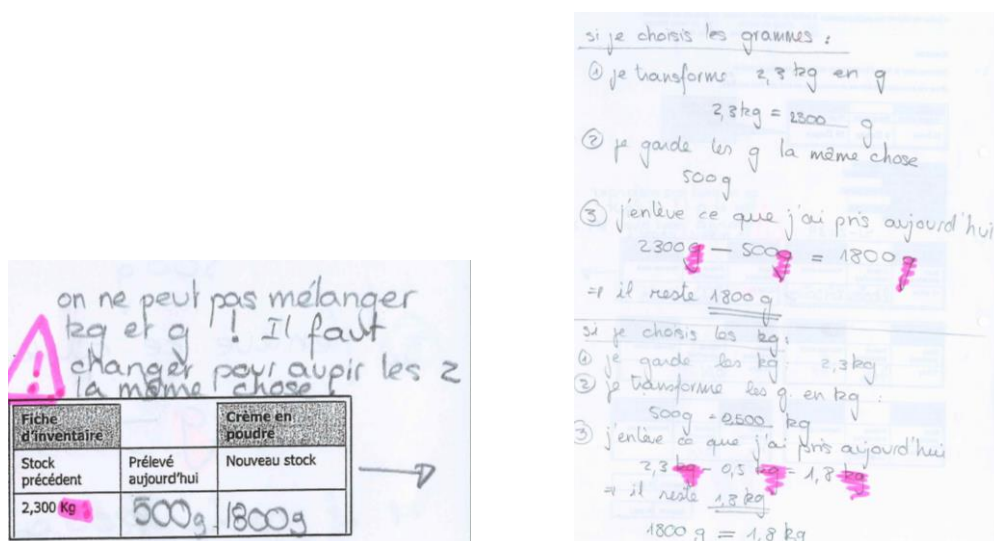 on ne peut pas mélanger
kg et g ! Il faut
changer pour avoir les 2
la même chose !
Fiche d'inventaire
Crème en poudre
Stock précédent
Prélevé aujourd'hui
Nouveau stock
2,300 Kg
500g
1800g
si je choisis les grammes :
① je transforme 2,3 kg en g
2,3 kg = 2300 g
② je garde les g la même chose
500 g
③ j'enlève ce que j'ai pris aujourd'hui
2300 g — 500 g = 1800 g
⇒ il reste 1800 g
si je choisis les kg :
① je garde les kg : 2,3 kg
② je transforme les g en kg :
500g = 0,500 kg
③ j'enlève ce que j'ai pris aujourd'hui
2,3 kg - 0,5 kg = 1,8 kg
⇒ il reste 1,8 kg
1800 g = 1,8 kg